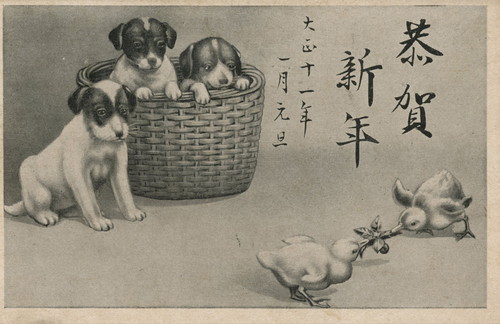 恭賀
新年
大正十一年
一月元旦